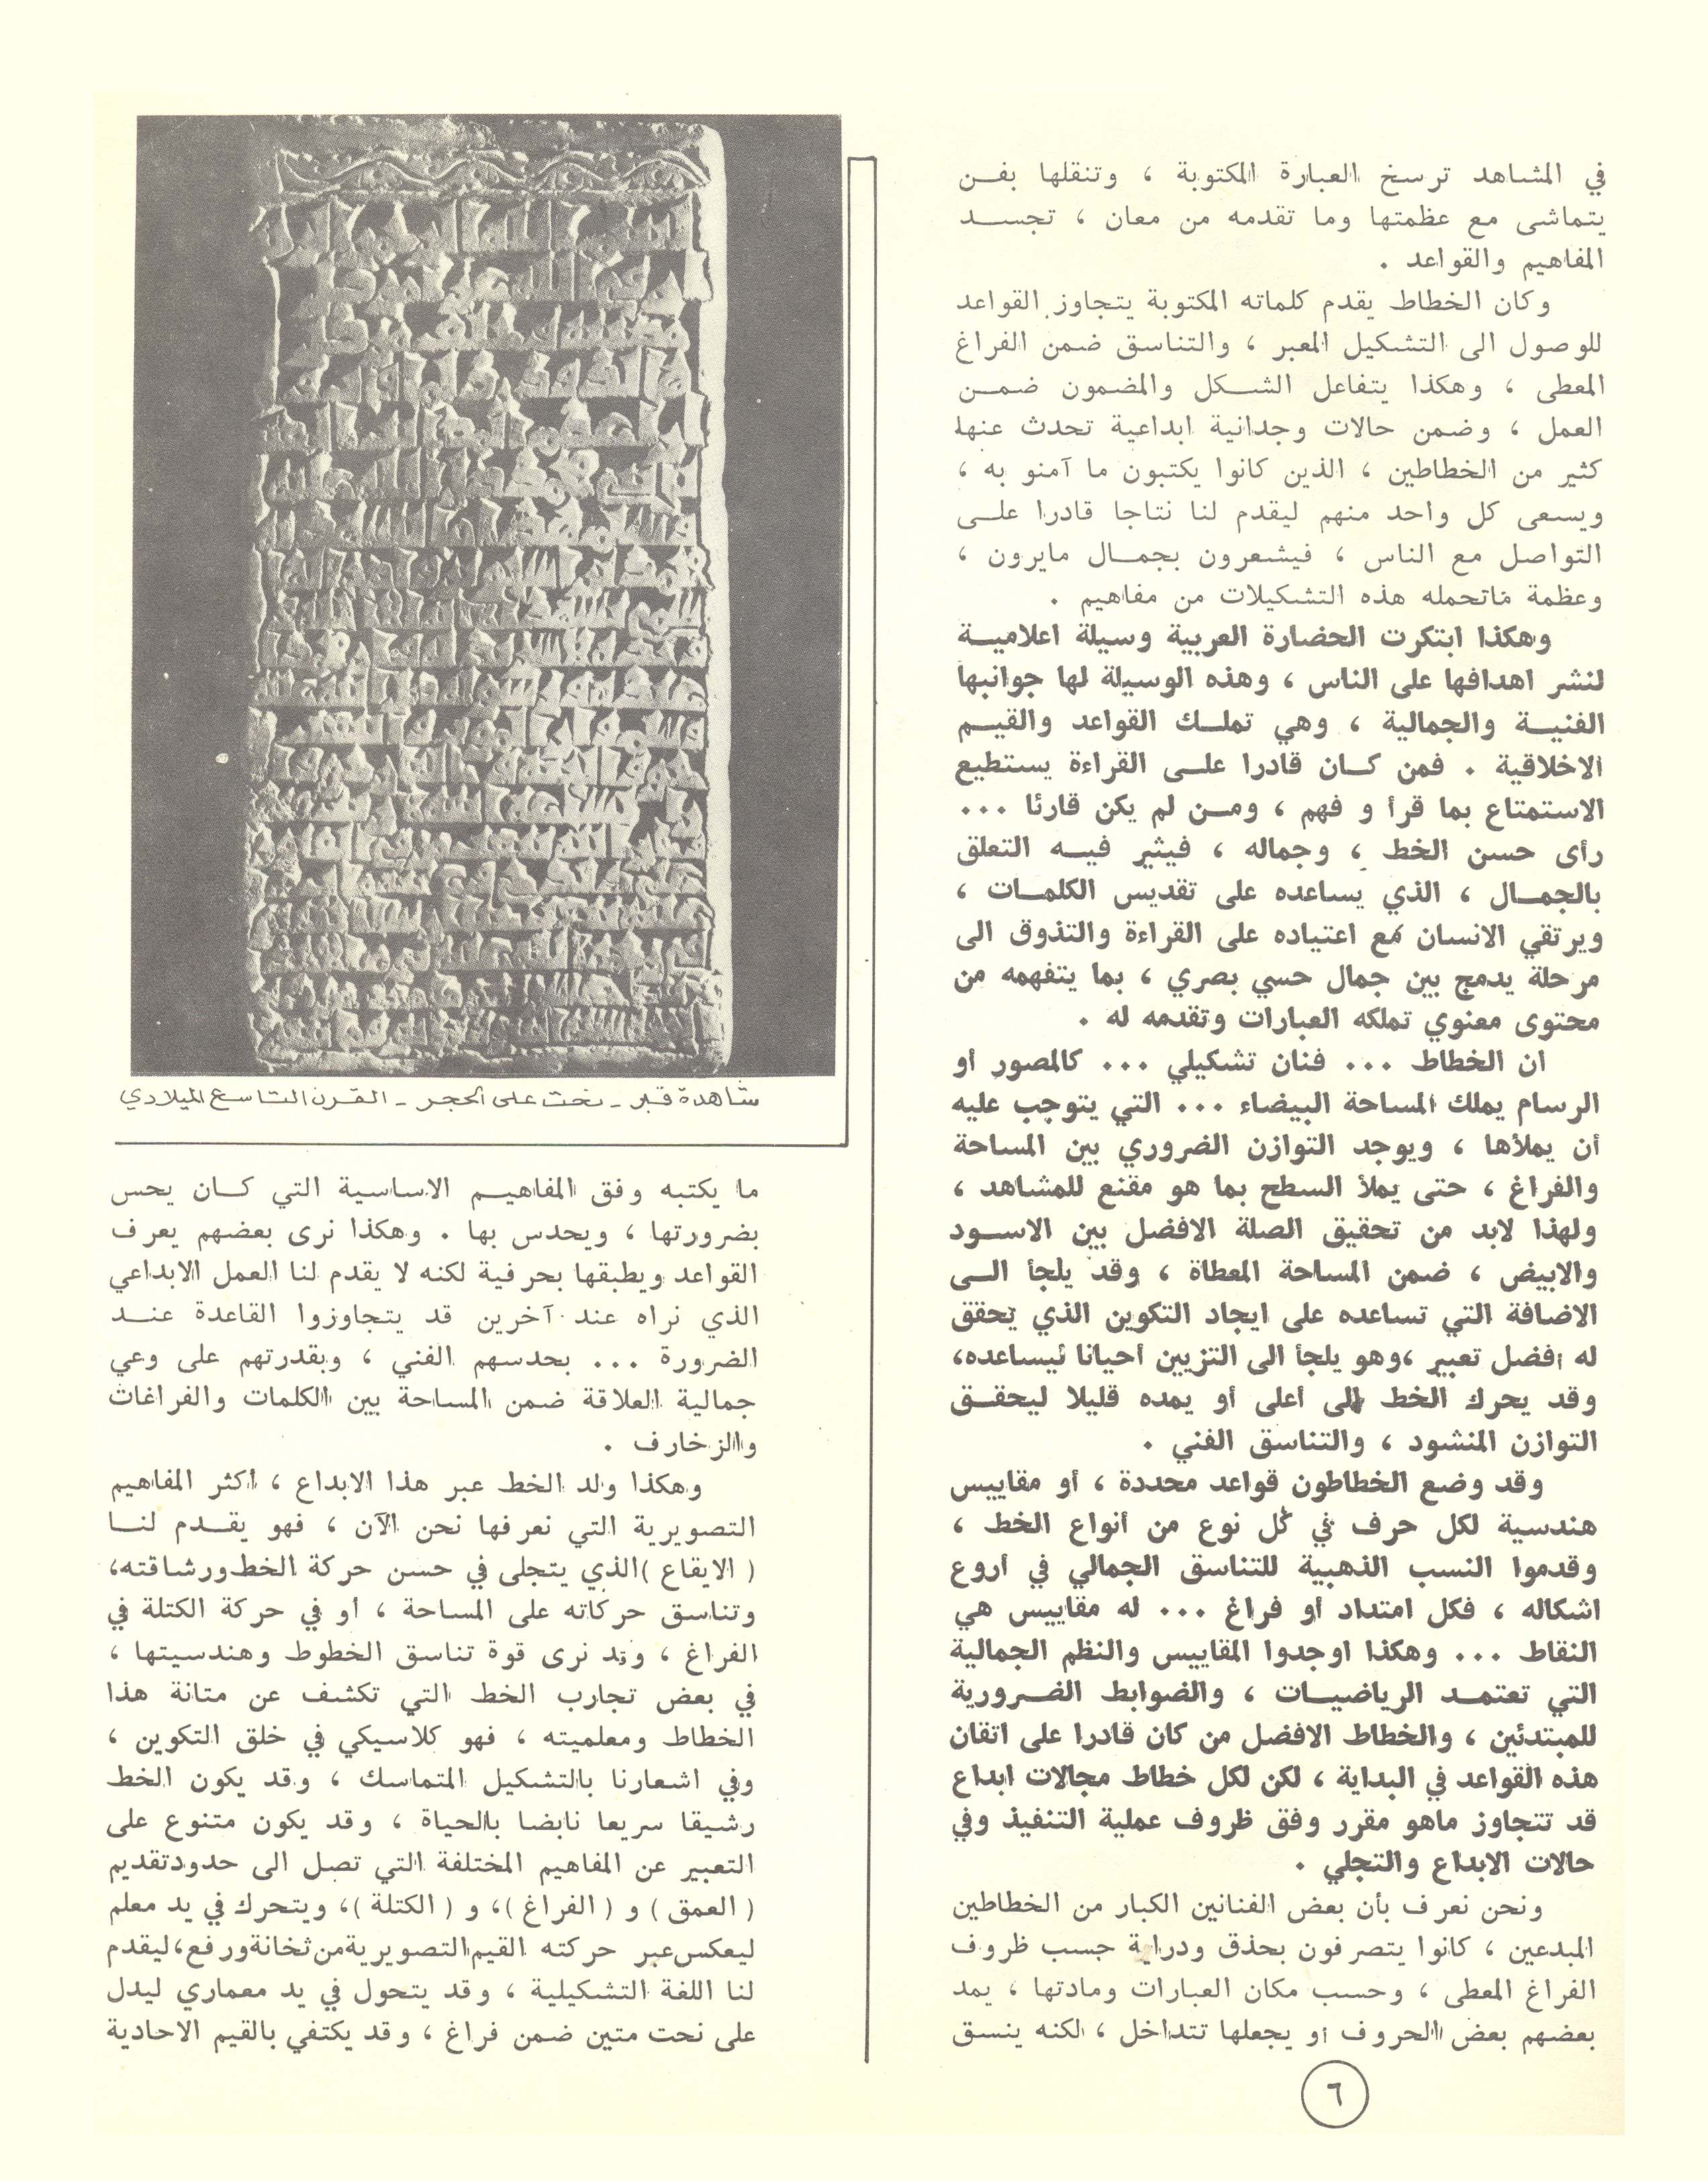 في المشاهد ترسخ العبارة المكتوبة ، وتنقلها بفـن
يتماشى مع عظمتها وما تقدمه من معان ، تجســد
المفاهيم والقواعد .
وكان الخطاط يقدم كلماته المكتوبة يتجاوز القواعد
للوصول الى التشكيل المعبر ، والتناسق ضمن الفراغ
المعطى ، وهكذا يتفاعل الشـكل والمضمون ضمـن
العمل ، وضمن حالات وجدانية ابداعية تحدث عنها
كثير من الخطاطين ، الذين كانوا يكتبون ما آمنو به ،
ويسعى كل واحد منهم ليقدم لنا نتاجا قادرا علـى
التواصل مع الناس ، فيشعرون بجمـال مايرون ،
وعظمة ماتحمله هذه التشكيلات من مفاهيم .
وهكذا ابتكرت الحضارة العربية وسيلة اعلاميـة
لنشر اهدافها على الناس ، وهذه الوسيلة لها جوانبها
الفنيـة والجمالية ، وهي تملـك القواعد والقيـم
الاخلاقية . فمن كـان قادرا علـى القراءة يستطيع
الاستمتاع بما قرأ و فهم ، ومـن لم يكن قارئا ...
رأى حسن الخط ، وجماله ، فيثير فيـه التعلق
بالجمـال ، الذي يساعده على تقديس الكلمـات ،
ويرتقي الانسان مع اعتياده على القراءة والتذوق الى
مرحلة يدمج بين جمال حسي بصري ، بما يتفهمه من
محتوى معنوي تملكه العبارات وتقدمه له .
ان الخطاط ... فنان تشكيلي ... كالمصور أو
الرسام يملك المساحة البيضاء ... التي يتوجب عليه
أن يملأها ، ويوجد التوازن الضروري بين المساحة
والفراغ ، حتى يملأ السطح بما هو مقنع للمشاهد ،
ولهذا لابد من تحقيق الصلة الافضل بين الاسـود
والابيض ، ضمن المساحة المعطاة ، وقد يلجأ الـى
الاضافة التي تساعده على ايجاد التكوين الذي يحقق
له افضل تعبير ،وهو يلجأ الى التزيين أحيانا ليساعده،
وقد يحرك الخط الى أعلى أو يمده قليلا ليحقـق
التوازن المنشود ، والتناسق الفني .
وقد وضع الخطاطون قواعد محددة ، أو مقاييس
هندسية لكل حرف في كل نوع من أنواع الخط ،
وقدموا النسب الذهبية للتناسق الجمالي في أروع
اشكاله ، فكل امتداد أو فراغ ... له مقاييس هي
النقاط ... وهكذا اوجدوا المقاييس والنظم الجمالية
التي تعتمـد الرياضيـات ، والضوابط الضـرورية
للمبتدئين ، والخطاط الافضل من كان قادرا على اتقان
هذه القواعد في البداية ، لكن لكل خطاط مجالات ابداع
قد تتجاوز ماهو مقرر وفق ظروف عملية التنفيذ وفي
حالات الابداع والتجلي .
ونحن نعرف بأن بعض الفنانين الكبار من الخطاطين
المبدعين ، كانوا يتصرفون بحذق ودراية حسب ظروف
الفراغ المعطى ، وحسب مكان العبارات ومادتها ، يمد
بعضهم بعض الحروف أو يجعلها تتداخل ، لكنه ينسق
شاهدة قبر - نحت على الحجر - القرن التاسع الميلادي
ما يكتبه وفق المفاهيـم الاساسية التي كـان يحس
بضرورتها ، ويحدس بها . وهكذا نرى بعضهم يعرف
القواعد ويطبقها بحرفية لكنه لا يقدم لنا العمل الابداعي
الذي نراه عند آخرين قد يتجاوزوا القاعدة عنـد
الضرورة ... بحدسهم الفني ، وبقدرتهم على وعي
جمالية العلاقة ضمن المساحة بين الكلمات والفراغات
والزخارف .
وهكذا ولد الخط عبر هذا الابداع ، أكثر المفاهيم
التصويرية التي نعرفها نحن الآن ، فهو يقـدم لنـا
( الايقاع )الذي يتجلى في حسن حركة الخط ورشاقته،
وتناسق حركاته على المساحة ، أو في حركة الكتلة في
الفراغ ، وقد نرى قوة تناسق الخطوط وهندسيتها ،
في بعض تجارب الخط التي تكشف عن متانة هذا
الخطاط ومعلميته ، فهو كلاسيكي في خلق التكوين ،
وفي اشعارنا بالتشكيل المتماسك ، وقد يكون الخط
رشيقا سريعا نابضا بالحياة ، وقد يكون متنوع على
التعبير عن المفاهيم المختلفة التي تصل الى حدودتقديم
( العمق ) و ( الفراغ )، و ( الكتلة )، ويتحرك في يد معلم
ليعكس عبر حركته القيم التصويرية من ثخانة ورفع،ليقدم
لنا اللغة التشكيلية ، وقد يتحول في يد معماري ليدل
على نحت متين ضمن فراغ ، وقد يكتفي بالقيم الاحادية
٦